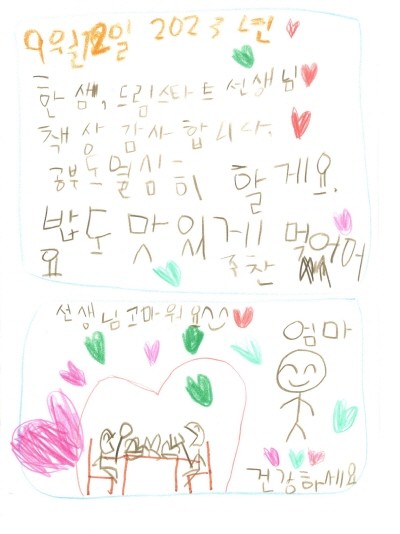 9월12일 2023년
한샘, 드림스타트 선생님
책상 감사합니다.
공부도 열심히 할게요.
밥도 맛있게 먹어어
요
선생님고마워요^^
엄마
건강하세요